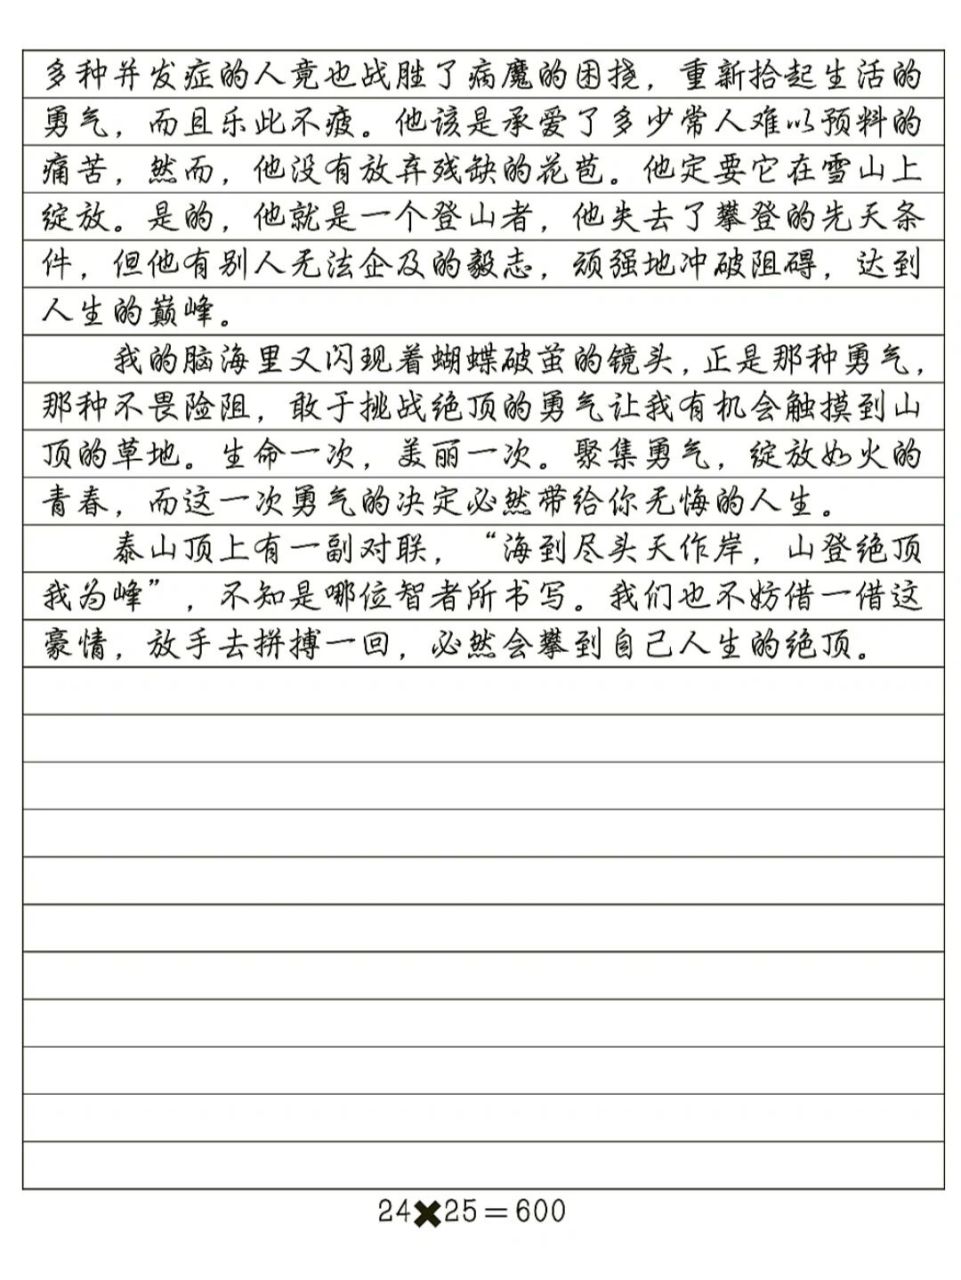 多种并发症的人竟也战胜了病魔的困挠，重新拾起生活的
勇气，而且乐此不疲。他该是承爱了多少常人难以预料的
痛苦，然而，他没有放弃残缺的花苞。他定要它在雪山上
绽放。是的，他就是一个登山者，他失去了攀登的先天条
件，但他有别人无法企及的毅志，顽强地冲破阻碍，达到
人生的巅峰。
我的脑海里又闪现着蝴蝶破茧的镜头，正是那种勇气，
那种不畏险阻，敢于挑战绝顶的勇气让我有机会触摸到山
顶的草地。生命一次，美丽一次。聚集勇气，绽放如火的
青春，而这一次勇气的决定必然带给你无悔的人生。
泰山顶上有一副对联，“海到尽头天作岸，山登绝顶
我为峰”，不知是哪位智者所书写。我们也不妨借一借这
豪情，放手去拼搏一回，必然会攀到自己人生的绝顶。
24✖25=600